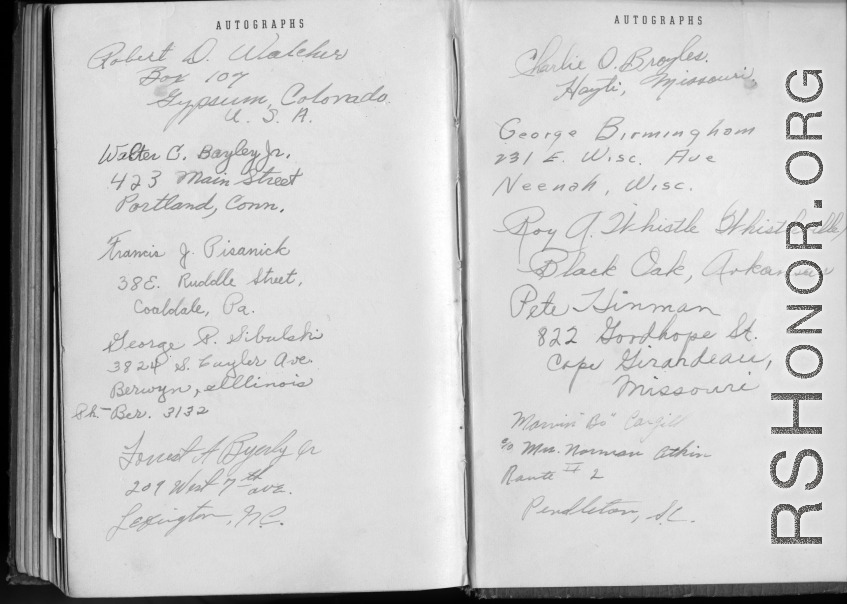 AUTOGRAPHS
Robert D. Walcher
Box 107
Gypsum, Colorado.
U. S. A.
Walter C. Bayley Jr.
423 Main Street
Portland, Conn.
Francis J. Pisanick
38 E. Ruddle Street,
Coaldale, Pa.
George S. Sibulski
3824 S. Cuyler Ave.
Berwyn, Illinois
Ph.- Ber. 3132
Forrest A Byerly Jr
209 West 7th ave.
Lexington, N.C.
AUTOGRAPHS
Charlie O. Broyles.
Hayti, Missouri.
George Birmingham
231 E. Wisc. Ave
Neenah, Wisc.
Roy A. Whistle
Black Oak, Arkansas
Pete Hinman
822 Goodhope St.
Cape Girardeau,
Missouri
Marvin "Bo" Cargill
c/o Mrs. Norman Atkin
Route # 2
Pendleton, S.C.
RSHONOR.ORG